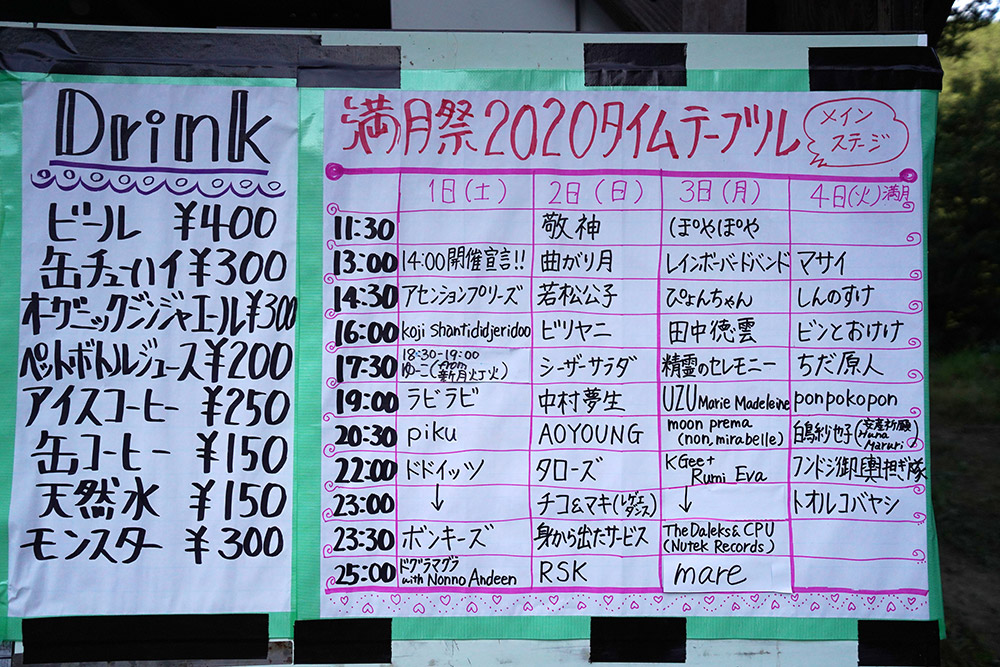 Drink
ビール ¥400
缶チューハイ ¥300
オーガニックジンジャエール ¥300
ペットボトルジュース ¥200
アイスコーヒー ¥250
缶コーヒー ¥150
天然水 ¥150
モンスター ¥300
満月祭2020タイムテーブル
メイン
ステージ
1日(土) 2日(日) 3日(月) 4日(火)満月
11:30 敬神 ぽやぽや
13:00 14:00開催宣言!! 曲がり月 レインボーバードバンド マサイ
14:30 アセンションプリーズ 若松公子 ぴょんちゃん しんのすけ
16:00 koji shantididjeridoo ビリヤニ 田中徳雲 ビンとおけけ
17:30 18:30-19:00 ゆーこ(from 新月灯火) シーザーサラダ 精霊のセレモニー ちだ原人
19:00 ラビラビ 中村夢生 UZU Marie Madeleine ponpokopon
20:30 piku AOYOUNG moon prema (non, mirabelle) 白鳥紗也子(安産祈願 Huna Maruri)
22:00 ドドイッツ タローズ KGee+ Rumi Eva フンドシ御輿担ぎ隊
23:00 ↓ チコ&マキ(レゲエダンス) ↓ トオルコバヤシ
23:30 ボンキーズ 身から出たサービス The Daleks & CPU (Nutek Records)
25:00 ドグラマグラ with Nonno Andeen RSK mare